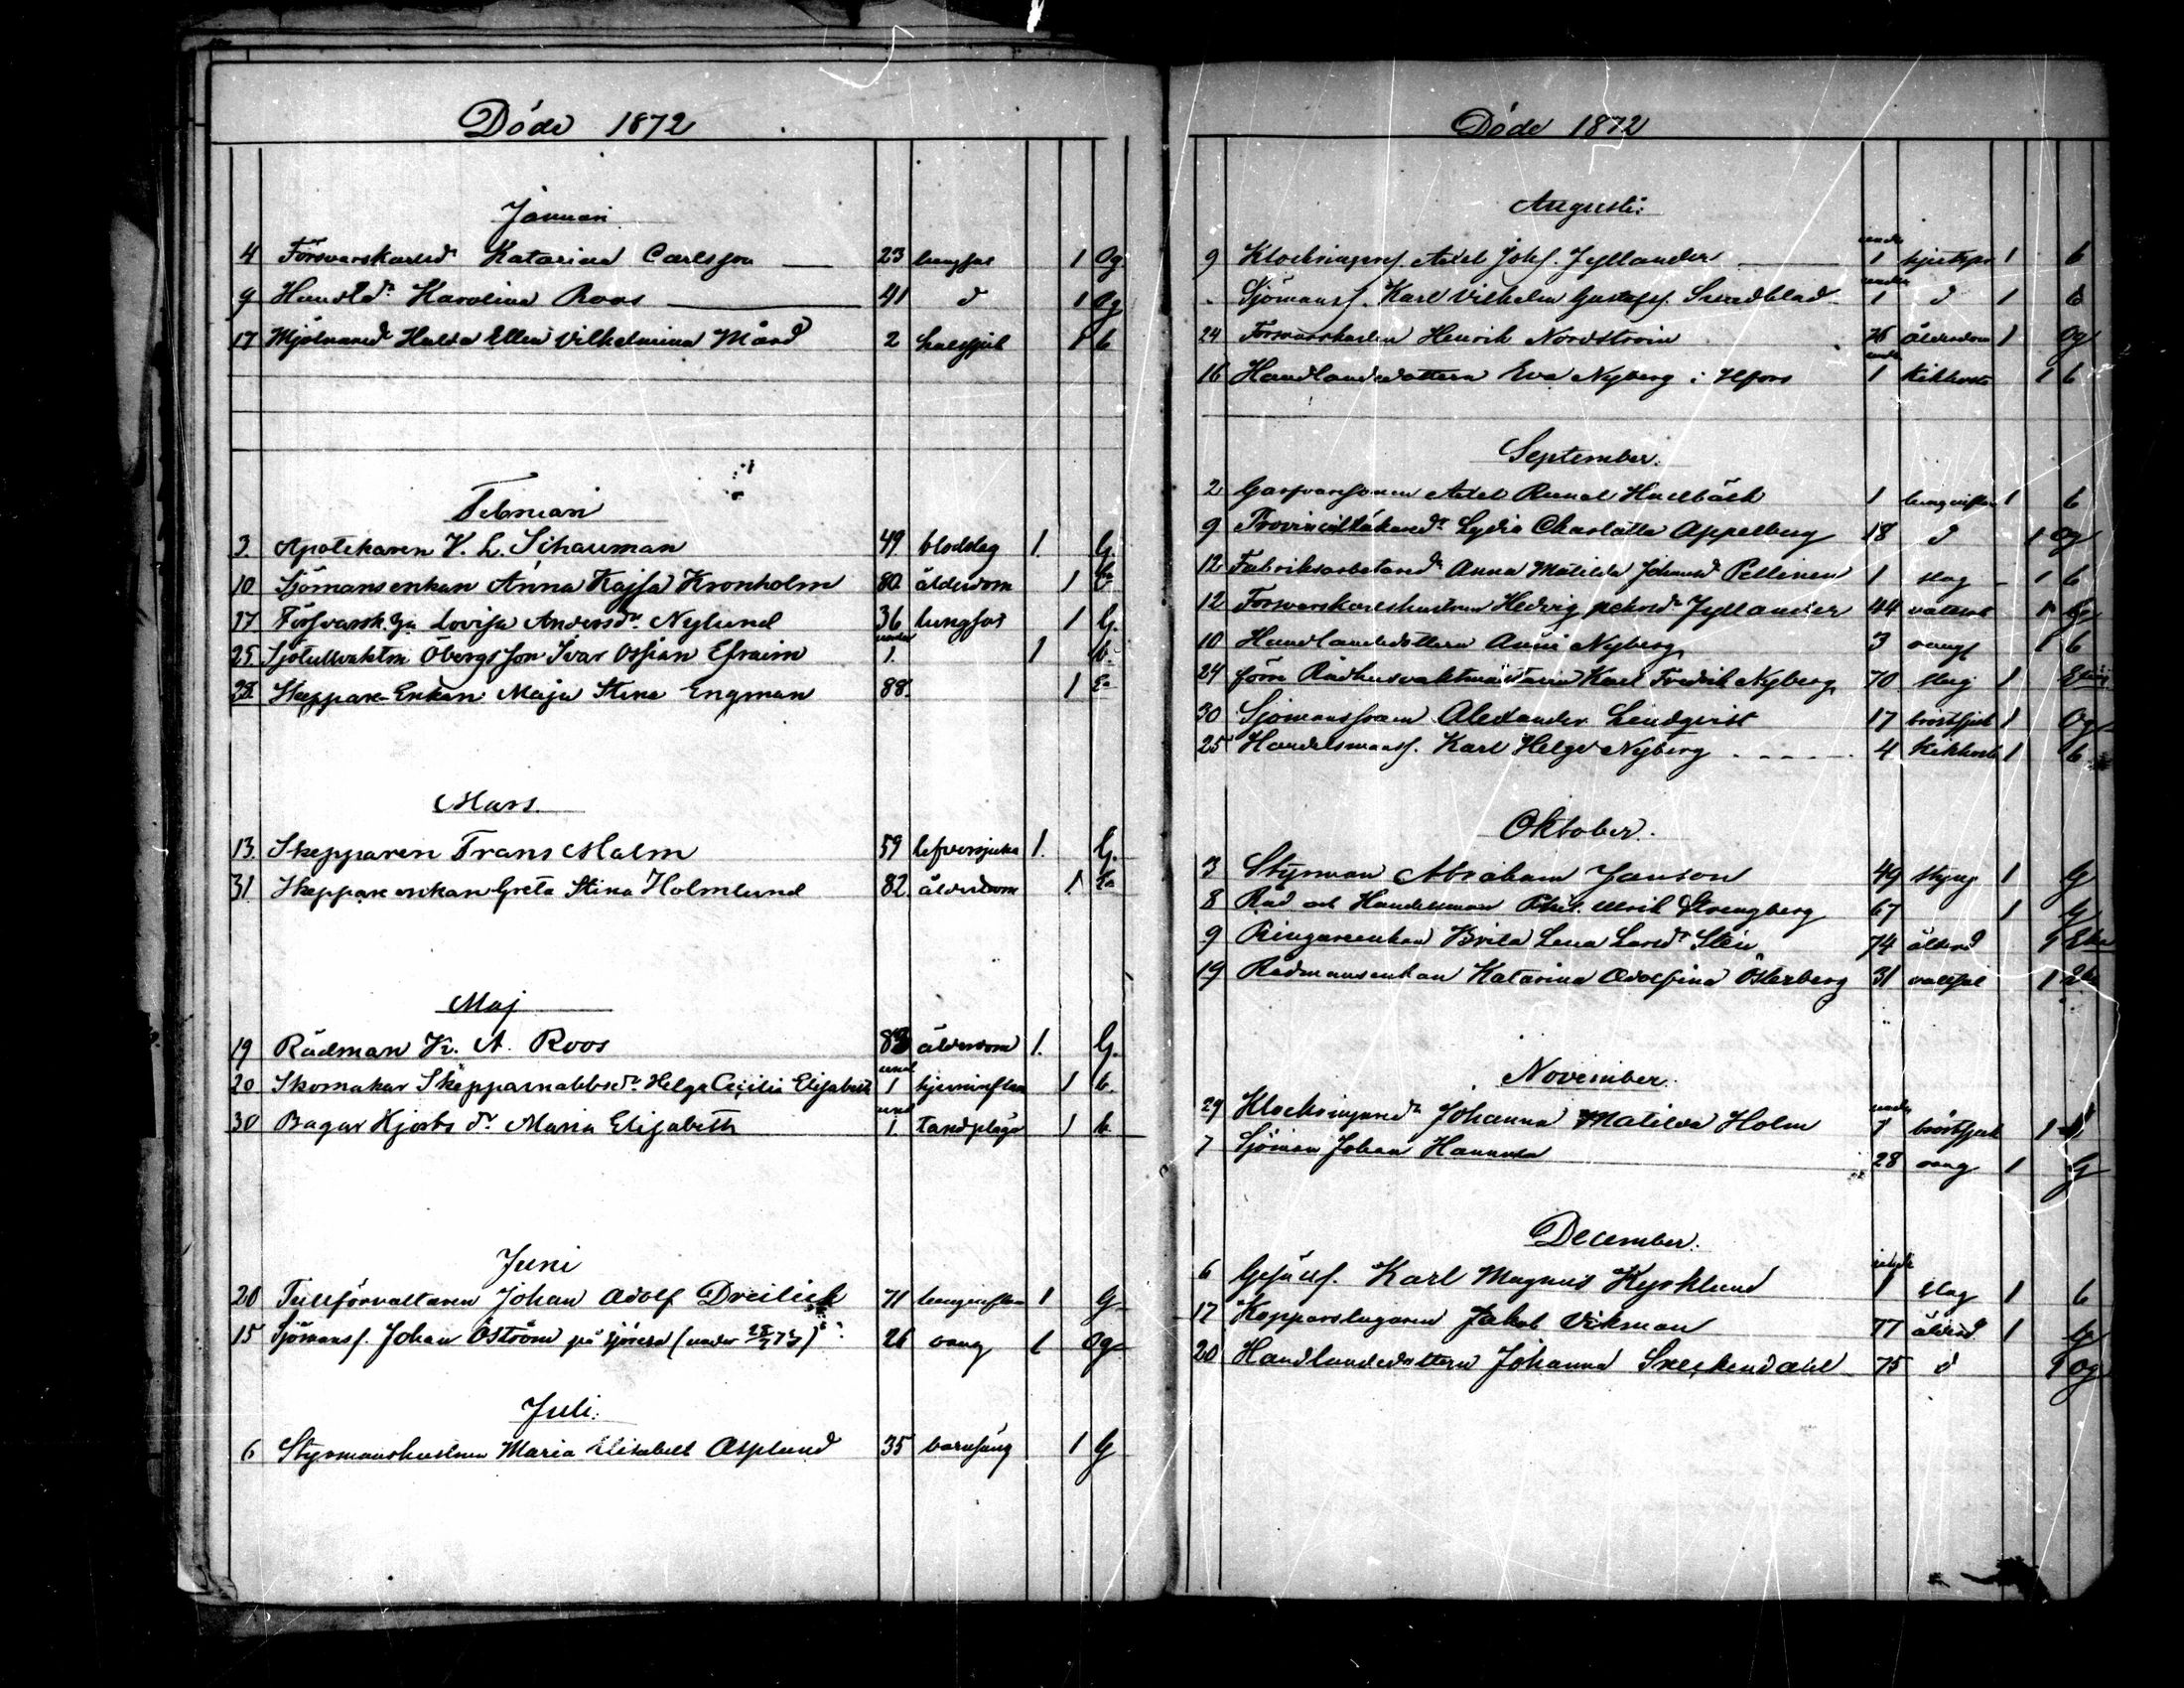 Döde 1872
Januari
4 Försvarskarlsdr Katarina Carlsson 23 lungsot 1 Og
9 Handldr Karolina Roos 41 d 1 Og
17 Mjölnared Hulda Ellen Vilhelmina Mård 2 halssjuk 1 b
Februari
3 Apotekaren V. L. Schauman 49 blodslag 1. G.
10 Sjömansenkan Anna Kajsa Kronholm 80 ålderdom 1 Ea
17 Försvarsk. Lovisa Andersdr Nylund 36 lungsot 1 G.
25 Sjötullvaktm Öbergs son Ivar Ossian Efraim under 1. 1 b.
28. Skeppare Enkan Maja Stina Engman 88. 1 Ea
Mars.
13. Skepparen Frans Malm 59 lefversjuka 1. G.
31 Skeppare enkan Greta Stina Holmlund 82 ålderdom 1 Ea
Maj
19 Rådman K. A. Roos 83 ålderdom 1. G.
20 Skomakar Helga Cecilia Elisabeth und 1 hjerninflam 1 b.
30 Bagar dr Maria Elisabeth und 1. tandplåga 1 b
Juni
20 Tullförvaltaren Johan Adolf Dreilick 71 lunginflam 1 G
15 Sjömans. Johan Öström på sjöresa (under 73) 26 oang 1 Og
Juli.
6 Styrmanshustrun Maria Elisabet Asplund 35 barnsäng 1 G
Döde 1872
Augusti:
9 Klockringares. Axel Johs. Jyllander under 1 1 b
Sjömans. Karl Vilhelm Gustafs. Sundblad under 1 d 1 b
24 Försvarskarlen Henrik Nordström 76 ålderdom 1 Og
16 Handlandedottern Eva Nyberg i Hfors under 1 Kikhosta 1 b
September.
2 Garfvaresonen Axel Runal 1 lunginflam 1 b
9 Provinciilläkared Lydia Charlotta Appelberg 18 d 1 Og
12 Fabriksarbetared Anna Matilda Johansd Pellinen 1 slag 1 b
12 Försvarskarlshustrun Hedvig Jyllander 44 vattsot 1 G
10 Handlandedottern Anni Nyberg 3 oang 1 b
24 förre Rådhusvaktmästaren Karl Fredrik Nyberg 70 slag 1
30 Sjömanssonen Alexander Lindqvist 17 bröstsjuk 1 Og
25 Handelsmans. Karl Helge Nyberg 4 Kikhost 1 b
Oktober.
3 Styrman Abraham Janson 49 styng 1 G
8 Råd och Handelsman Ulrik Strengberg 67 1 G
9 Ringareenkan Brita Lena Larsdr Stén 74 ålderd 1
19 Rådmansenkan Katarina Adolfina Österberg 31 vattsot 1
November.
29 Klockringaredr Johanna Matilda Holm under 1 bröstsjuk 1
7 Sjöman Johan Hannula 28 oang 1 G
December.
6 Gesälls. Karl Magnus Kyrklund under 1 slag 1 b
17 Kopparslagaren Jakob Vikman 77 ålderd 1 G
20 Handlandedottern Johanna Sneckendahl 75 d 1 Og